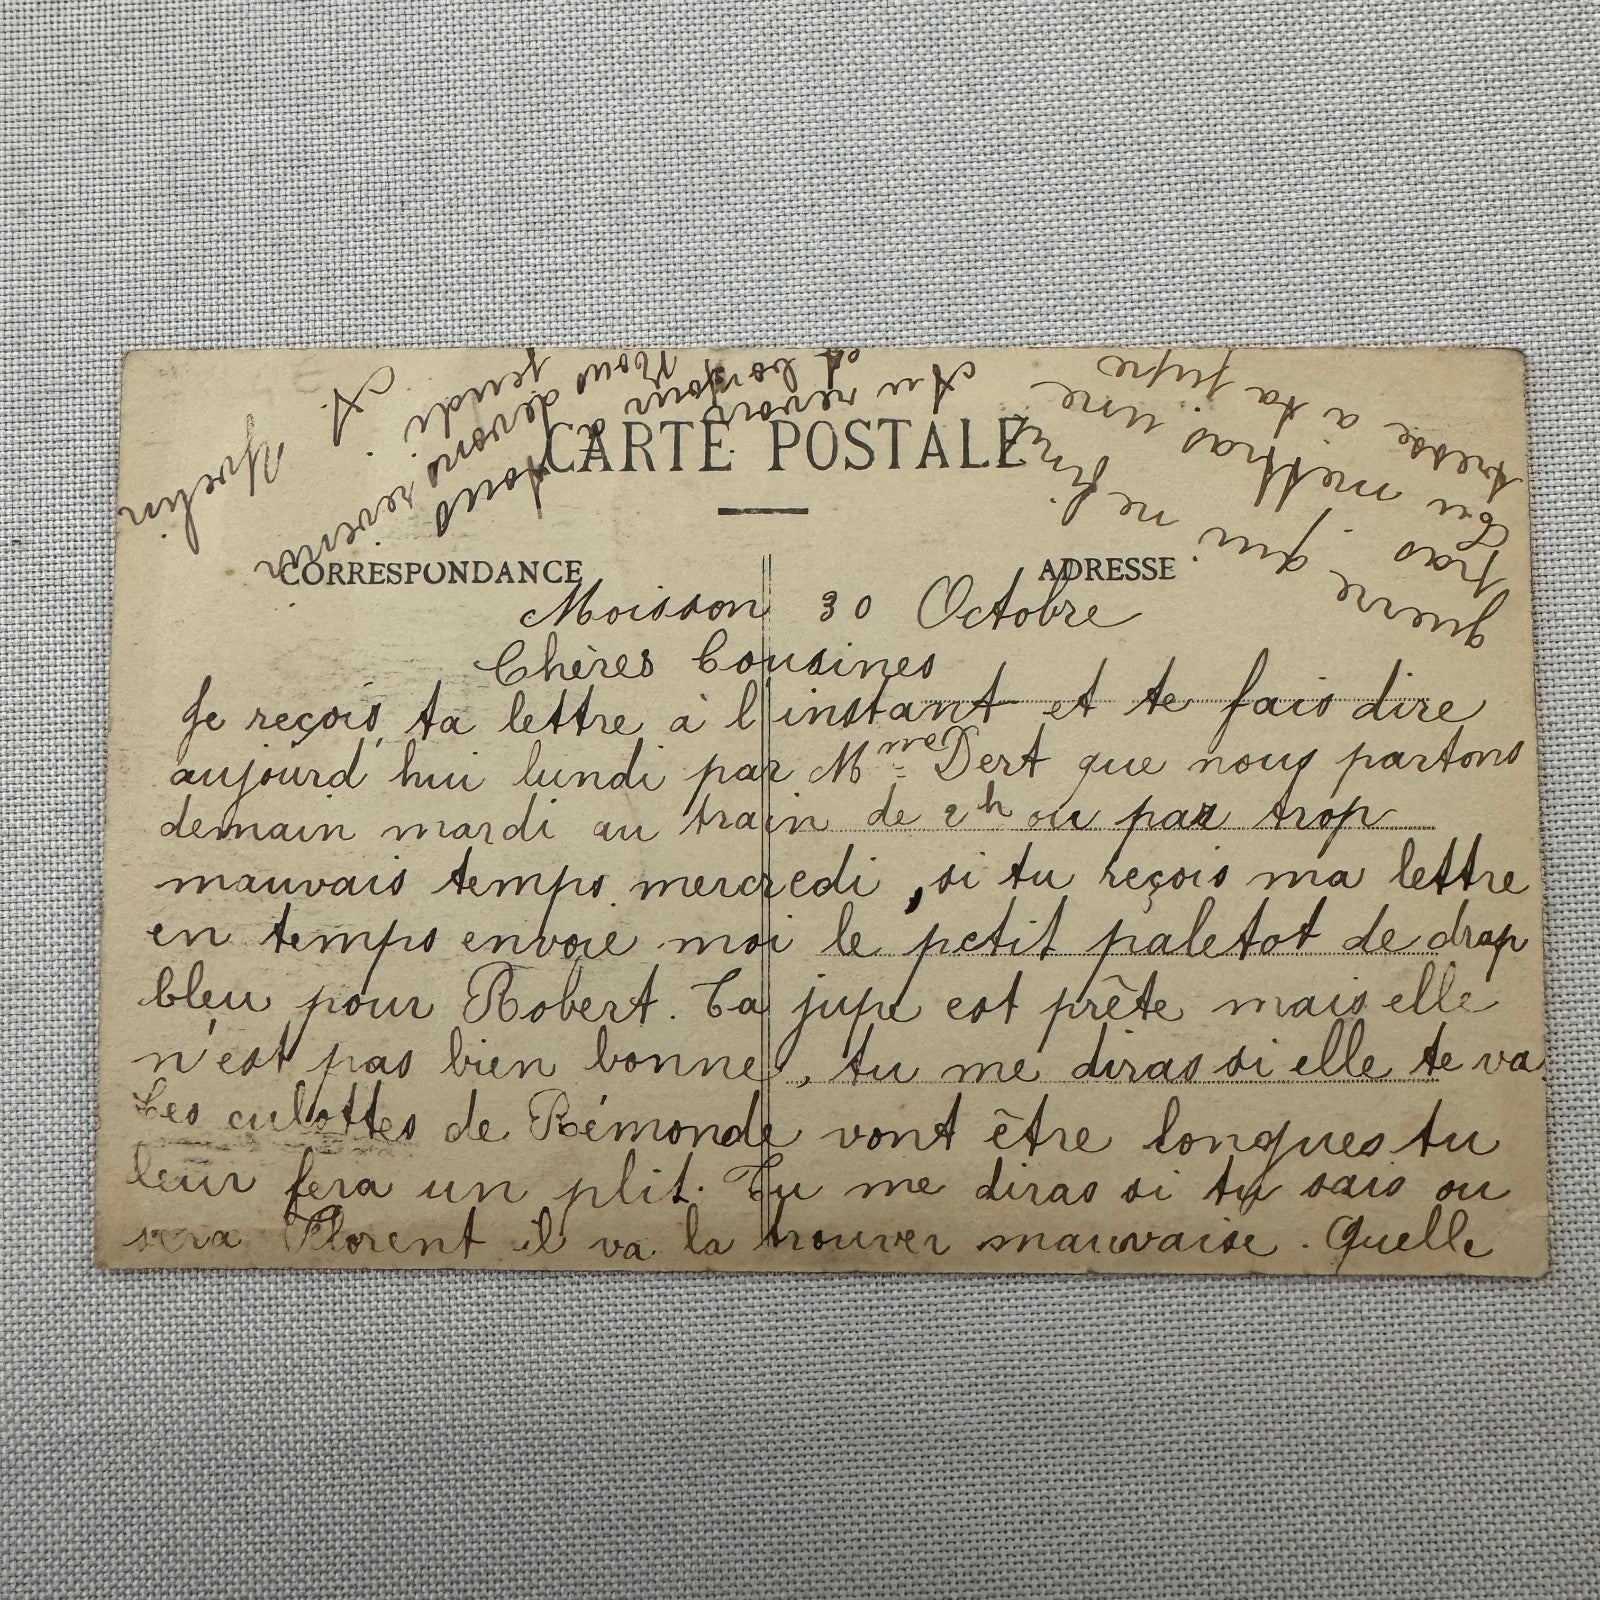 CARTE POSTALE
CORRESPONDANCE
ADRESSE
Moisson 30 Octobre
Chères Cousines
Je reçois ta lettre à l'instant et te fais dire
aujourd hui lundi par Mme Dert que nous partons
demain mardi au train de 2h ou par trop
mauvais temps mercredi, si tu reçois ma lettre
en temps envoie moi le petit paletot de drap
bleu pour Robert. Ta jupe est prête mais elle
n'est pas bien bonne, tu me diras si elle te va.
Les culottes de Rémonde vont être longues tu
leur fera un plit. Tu me diras si tu sais ou
sera Florent il va la trouver mauvaise. Quelle
guerre qui ne finit
pas
Tu mettras une
tresse a ta jupe
Au revoir
et bonjour a
tous
Nous devons revenir
jeudi
A.
Yvelin